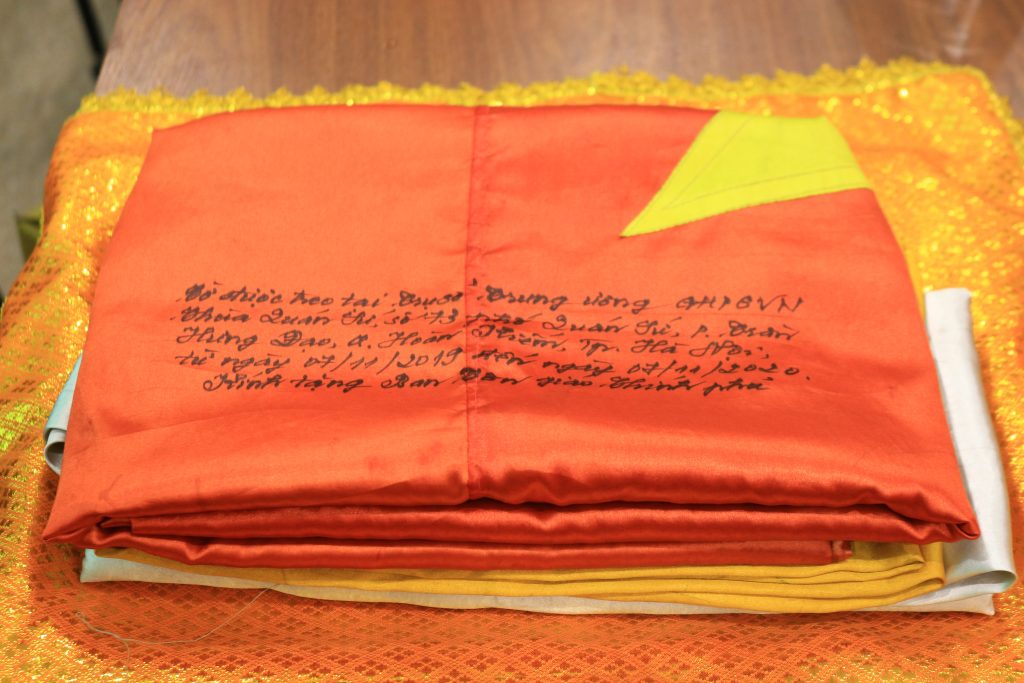 Cờ được treo tại Trụ sở Trung ương GHPGVN
Chùa Quán Sứ, số 73 phố Quán Sứ, P. Trần
Hưng Đạo, Q. Hoàn Kiếm, Tp. Hà Nội,
từ ngày 07/11/2019 đến ngày 07/11/2020.
Kính tặng Ban Tôn giáo Chính phủ